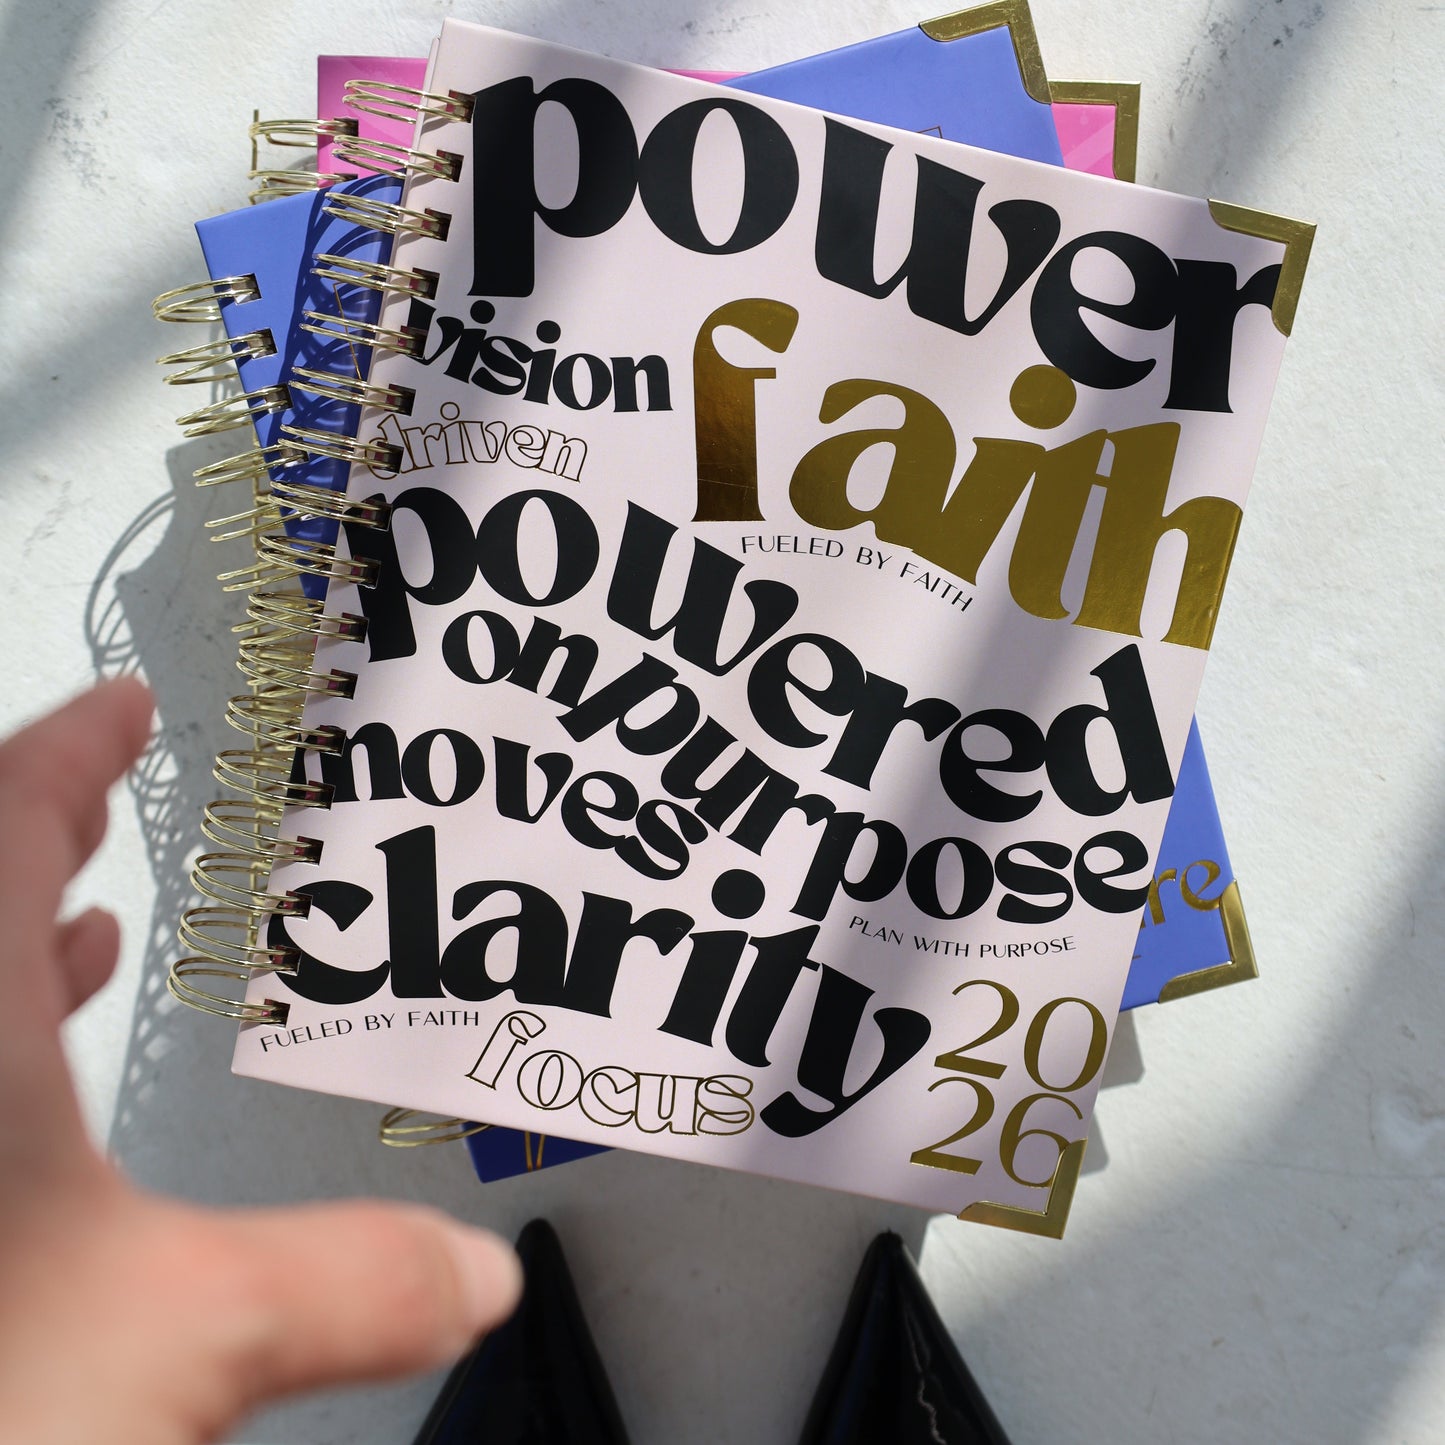 power
vision
faith
driven
FUELED BY FAITH
powered
on purpose
moves
clarity
PLAN WITH PURPOSE
FUELED BY FAITH
focus
20
26